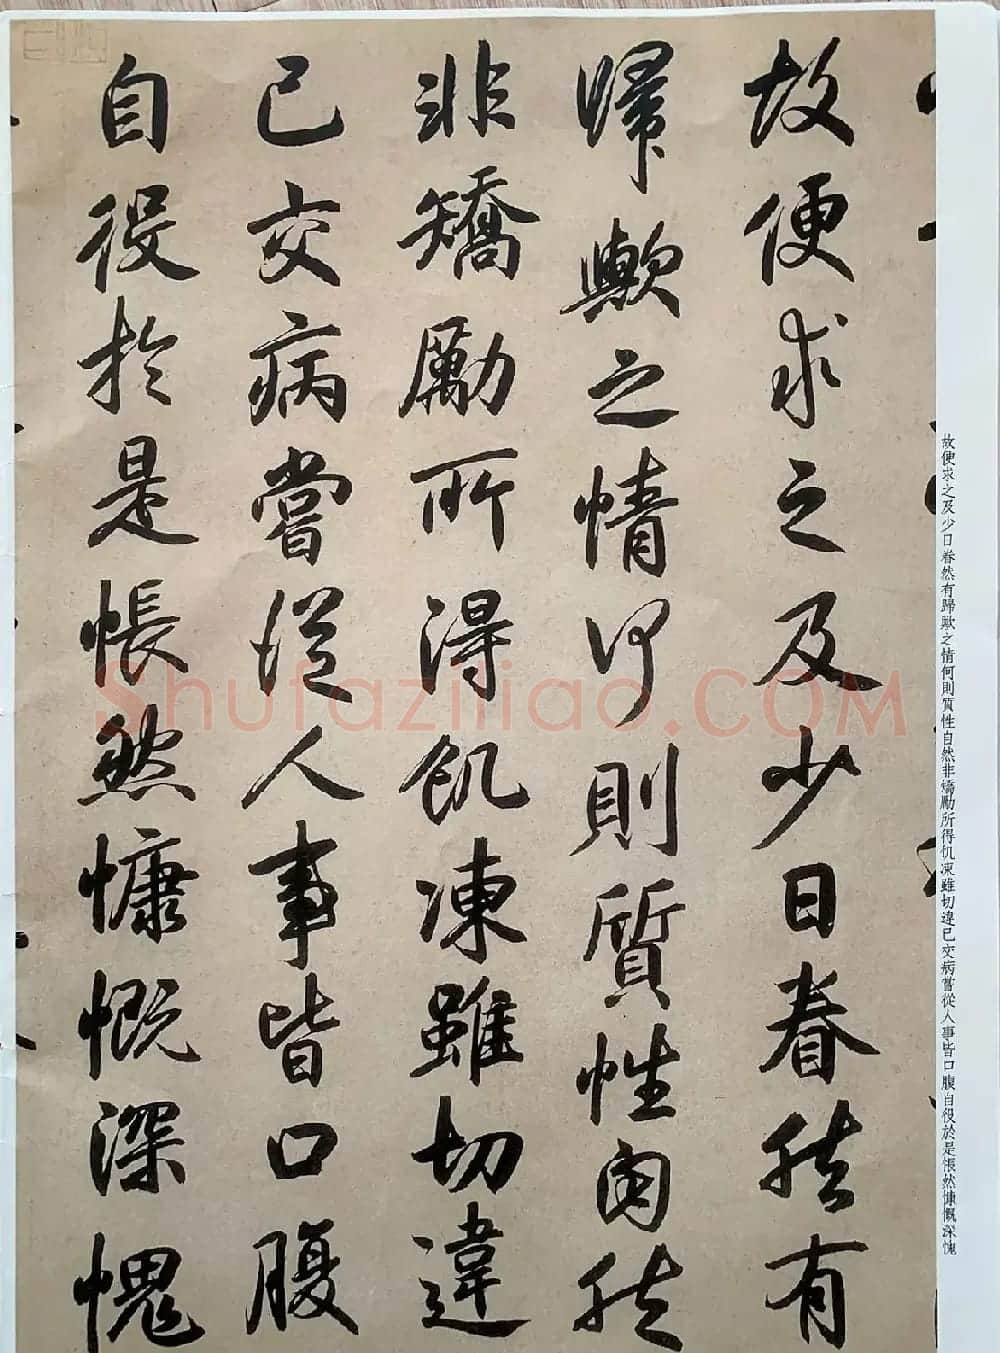 故便求之及少日眷然有
歸歟之情何則質性自然
非矯勵所得飢凍雖切違
已交病嘗從人事皆口腹
自役於是悵然慷慨深愧
故便求之及少日眷然有歸歟之情何則質性自然非矯勵所得飢凍雖切違已交病嘗從人事皆口腹自役於是悵然慷慨深愧
Shufaziliao.COM